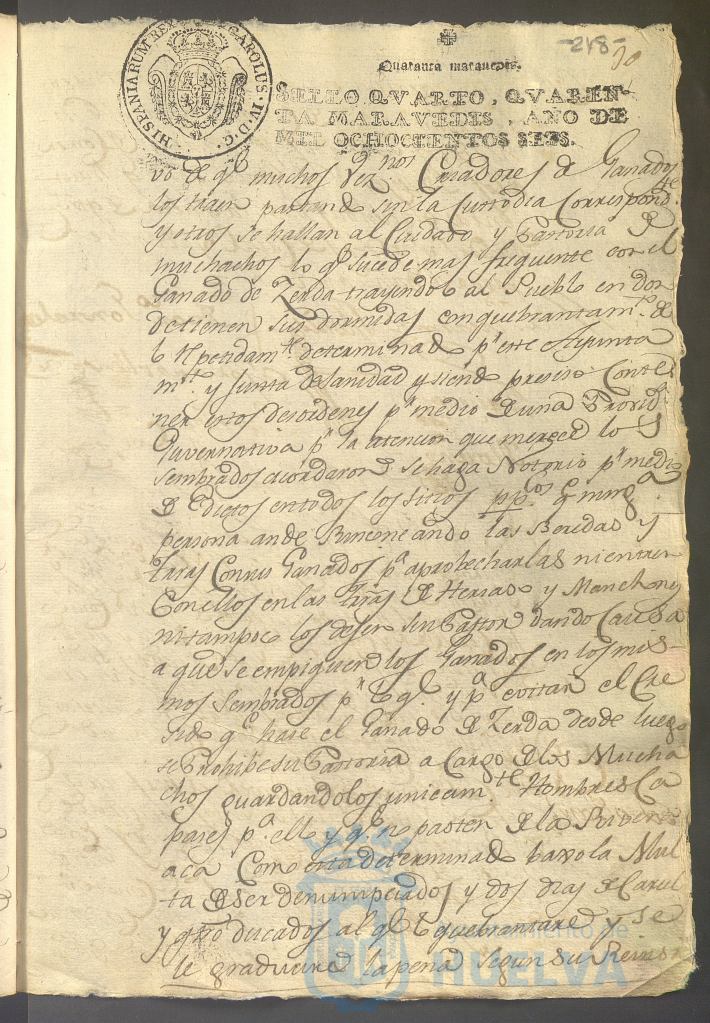 -218-
HISPANIARUM REX CAROLUS IV D G
Quarenta maravedis.
SELLO QVARTO, QVAREN-
TA MARAVEDIS, AÑO DE
MIL OCHOCIENTOS SEIS.
vo de q.e muchos Vez.nos Criadores de Ganados
los traen pastand sin la Custodia Correspond.te
y otros se hallan al Cuidado y Pastoria de
muchachos lo q.e sucede mas frequente con el
Ganado de Zerda trayendolo al Pueblo en don
de tienen sus dormidas con quebrantam.to de
lo determinad p.r este Ayunta
m.to y Junta de Sanidad y siendo preciso Conte
ner estos desordenes p.r medio de una Provid.a
Guvernativa p.r la atencion que merece los
sembrados acordaron se haga Notorio p.r medio
de Edictos en todos los sitios pp.cos q.e ning.a
persona ande Rinconeando las Beredas y
Con sus Ganados p.a aprobecharlas ni entren
Con ellos en las de Herras y Manchones
ni tampoco los dejen sin Pastor dando Causa
a que se empiquen los Ganados en los mis-
mos sembrados p.r lo q.e y p.a evitar el
q.e hase el Ganado de Zerda desde luego
se Prohibe su Pastoria a Cargo de los Mucha
chos guardandolos unicam.te Hombres Ca
pases p.a ello y q.e no pasten de la Rivera
aca Como esta determinad baxo la Mul
ta de ser denunpciados y dos dias de Carsel
y qtro ducados al q.e lo quebrantare y se
le graduare la pena segun su
Ayuntamiento de
HUELVA